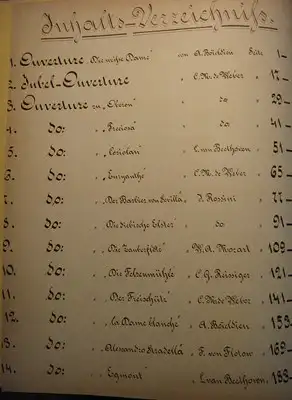 Inhalts-Verzeichniss.
1. Ouverture „Die weisse Dame" von A. Boieldieu Seite 1-
2. Jubel-Ouverture " C. M. de Weber " 17-
3. Ouverture zu „Oberon" " do " 29-
4. do: " „Preciosa" " do " 41-
5. do: " „Coriolan" " L. van Beethoven " 51-
6. do: " „Euryanthe" " C. M. de Weber " 65-
7. do: " „Der Barbier von Sevilla" " J. Rossini " 77-
8. do: " „Die diebische Elster" " do " 91-
9. do: " „Die Zauberflöte" " W. A. Mozart " 109-
10. do: " „Die Felsenmühle" " C. G. Reissiger " 121-
11. do: " „Der Freischütz" " C. M. de Weber " 141-
12. do: " „La Dame blanche" " A. Boieldieu " 153-
13. do: " „Alessandro Stradella" " F. von Flotow " 169-
14. do: " „Egmont" " L. van Beethoven " 183-